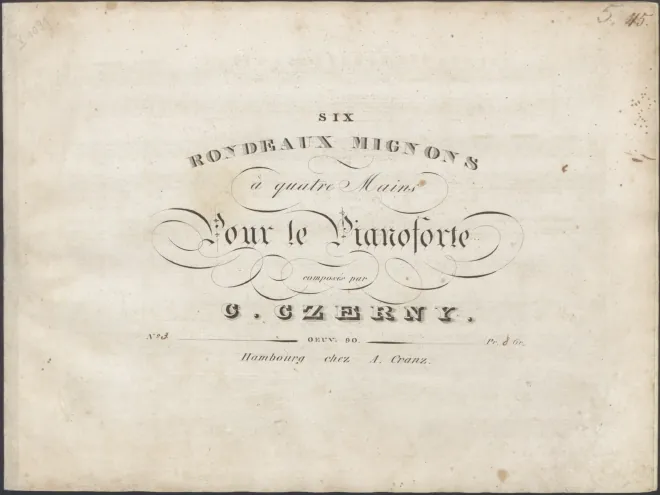 5. 45.
SIX
RONDEAUX MIGNONS
à quatre Mains
Pour le Pianoforte
composés par
C. CZERNY.
No 3. OEUV. 90. Pr. 8 Gr.
Hambourg chez A. Cranz.